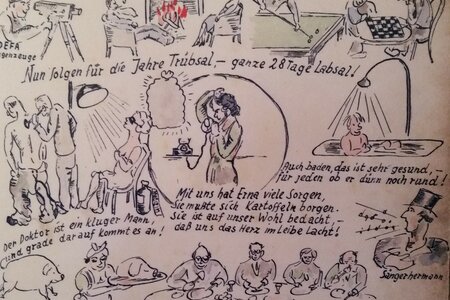 DEFA
Nun folgen für die Jahre Trübsal, – ganze 28 Tage Labsal!
Auch baden, das ist sehr gesund,
für jeden ob er dürr noch rund!
Mit uns hat Erna viele Sorgen,
Sie mußte sich Kartoffeln borgen.
Sie ist auf unser Wohl bedacht, –
daß uns das Herz im Leibe lacht!
Der Doktor ist ein kluger Mann,
und grade darauf kommt es an!
Sängerhermann